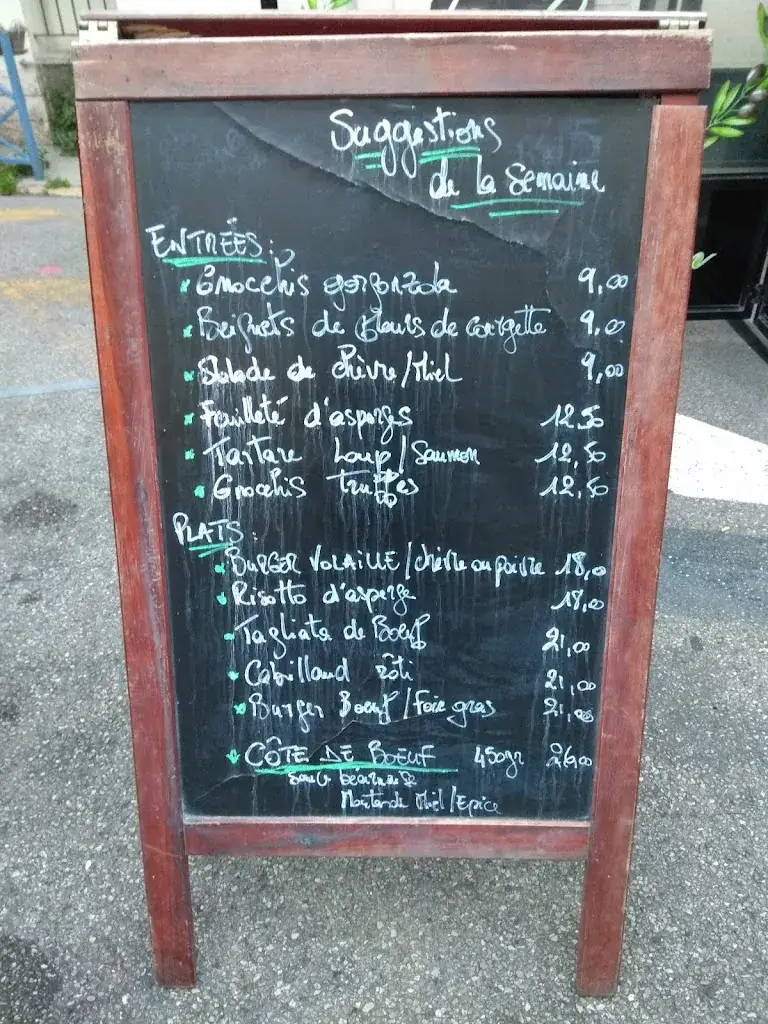 Suggestions
de la semaine
ENTRÉES:
Gnocchis gorgonzola 9,00
Beignets de fleurs de courgette 9,00
Salade de chèvre/Miel 9,00
Feuilleté d'asperges 12,50
Tartare Loup/Saumon 12,50
Gnocchis truffes 12,50
PLATS:
BURGER VOLAILLE/chèvre ou poivre 18,00
Risotto d'asperge 18,00
Tagliata de Boeuf 21,00
Cabillaud rôti 21,00
Burger Boeuf/Foie gras 21,00
CÔTE DE BOEUF 450gr 26,00
Sauce béarnaise
Moutarde Miel/Epice